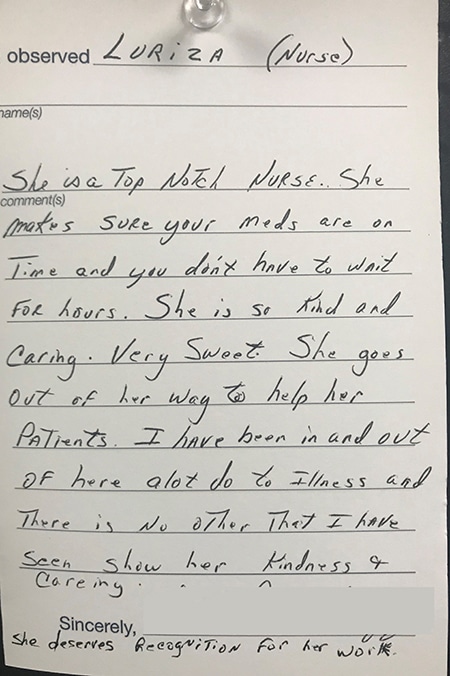 observed LURIZA (Nurse)
name(s)
She is a Top Notch NURSE.. She
comment(s)
makes SURE your meds are on
Time and you don't have to wait
FOR hours. She is so Kind and
Caring. Very Sweet. She goes
out of her way to help her
PATients. I have been in and out
OF here alot do to Illness and
There is No other That I have
Seen show her Kindness &
Careing.
Sincerely,
She deserves RecogNiTiON FOR her work.